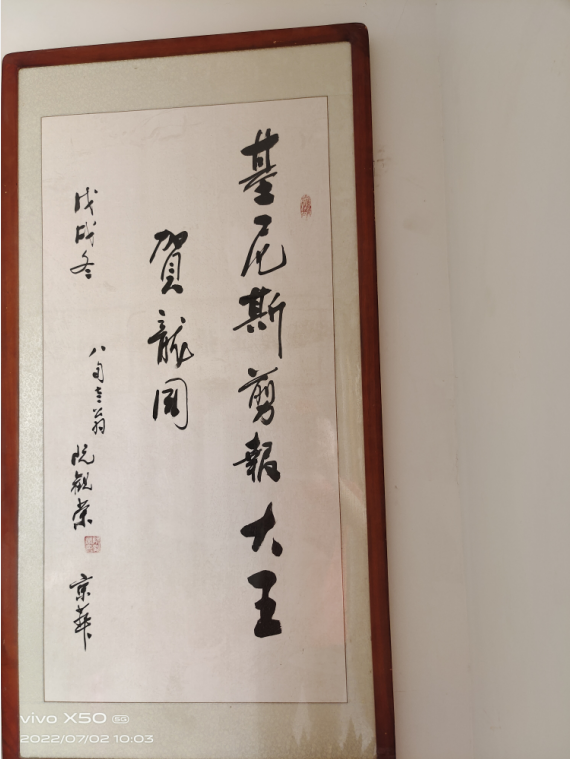 基尼斯剪報大王
賀龍国
戊戌冬 八旬老翁 阮觀荣 京華
vivo X50 5G
2022/07/02 10:03